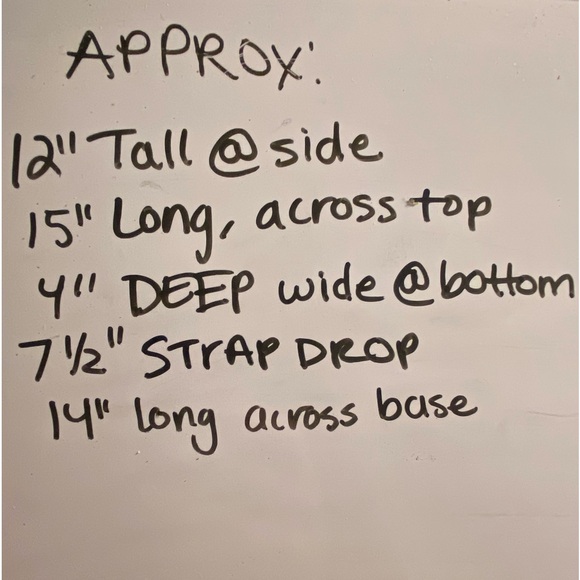 APPROX:
12" Tall @ side
15" Long, across top
4" DEEP wide @ bottom
7 1/2" STrAP DROP
14" long across base